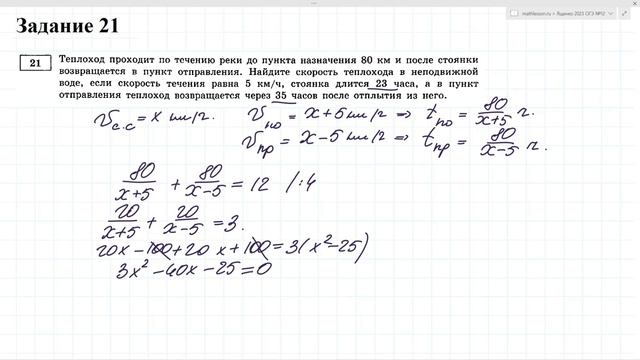 mathlesson.ru > Ященко 2023 ОГЭ №12
Задание 21
21
Теплоход проходит по течению реки до пункта назначения 80 км и после стоянки
возвращается в пункт отправления. Найдите скорость теплохода в неподвижной
воде, если скорость течения равна 5 км/ч, стоянка длится 23 часа, а в пункт
отправления теплоход возвращается через 35 часов после отплытия из него.
Vс.с = x км/ч. Vпо = x+5 км/ч => tпо = 80/(x+5) ч.
Vпр = x-5 км/ч => tпр = 80/(x-5) ч.
80/(x+5) + 80/(x-5) = 12 /:4
20/(x+5) + 20/(x-5) = 3.
20x - 100 + 20x + 100 = 3(x²-25)
3x² - 40x - 25 = 0